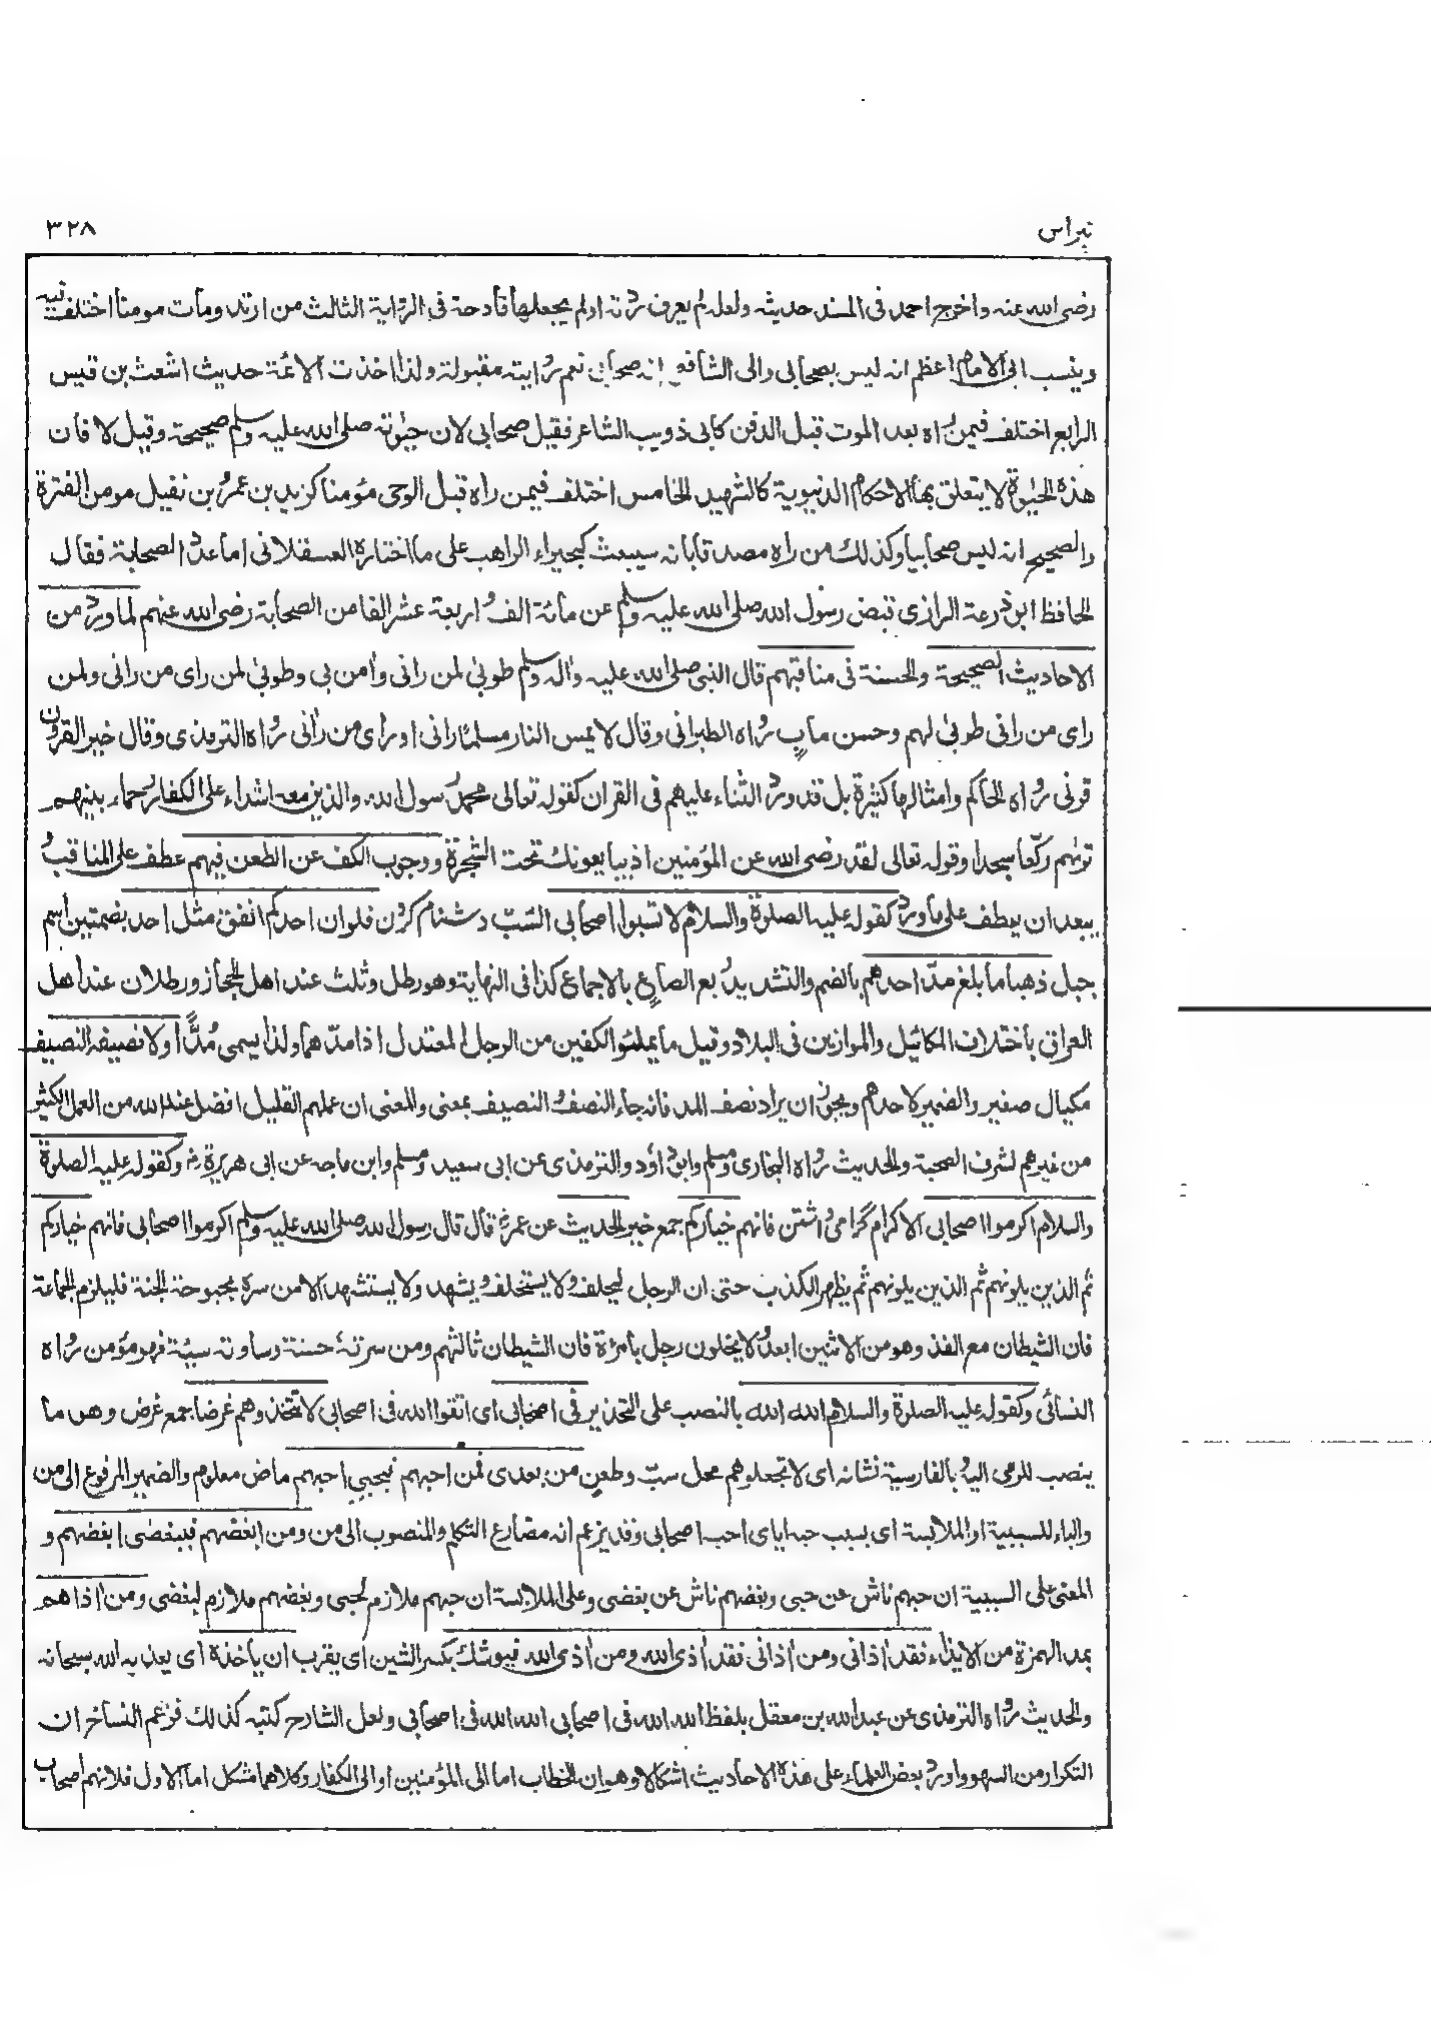 نبراس
٣٢٨
رضى الله عنه واخرج احمد فى المسند حديثه ولعله لم يعرف ردته اولم يجعلها قادحة فى الرواية الثالث من ارتد ومات مومنا اختلف فيه
وينسب الى الامام اعظم انه ليس بصحابى والى الشافعى انه صحابى نعم روايته مقبولة ولذا اخذت الائمة حديث اشعث بن قيس
الرابع اختلف فيمن راه بعد الموت قبل الدفن كابى ذويب الشاعر فقيل صحابى لان حيوته صلى الله عليه وسلم صحيحة وقيل لا فان
هذه الحيوة لا يتعلق بها الاحكام الدنيوية كالشهيد الخامس اختلف فيمن راه قبل الوحى مؤمنا كزيد بن عمرو بن نفيل مومن الفترة
والصحيح انه ليس صحابيا وكذلك من راه مصدقا بانه سيبعث كبحيراء الراهب على ما اختاره العسقلانى اما عدد الصحابة فقال
الحافظ ابو زرعة الرازى قبض رسول الله صلى الله عليه وسلم عن مائة الف واربعة عشر الفا من الصحابة رضى الله عنهم لما ورد من
الاحاديث الصحيحة والحسنة فى مناقبهم قال النبى صلى الله عليه واله وسلم طوبى لمن رانى وامن بى وطوبى لمن راى من رانى ولمن
راى من رانى طوبى لهم وحسن مابٍ رواه الطبرانى وقال لا يمس النار مسلما رانى او راى من رانى رواه الترمذى وقال خير القرون
قرنى رواه الحاكم وامثالها كثيرة بل قد ورد الثناء عليهم فى القران كقوله تعالى محمد رسول الله والذين معه اشداء على الكفار رحماء بينهم
تريهم ركعا سجدا وقوله تعالى لقد رضى الله عن المؤمنين اذ يبايعونك تحت الشجرة ووجوب الكف عن الطعن فيهم عطف على المناقب و
يبعد ان يعطف على ما ورد كقوله عليه الصلوة والسلام لا تسبوا اصحابى السّبّ دشنام كردن فلو ان احدكم انفق مثل احد بضمتين اسم
جبل ذهبا ما بلغ مدّ احدهم بالضم والتشديد ربع الصاع بالاجماع كذا فى النهاية وهو رطل وثلث عند اهل الحجاز ورطلان عند اهل
العراق باختلاف المكائيل والموازين فى البلاد وقيل ما يملئو الكفين من الرجل المعتدل اذا مدّهما ولذا يسمى مُدًّا ولا نصيفه النصيف
مكيال صغير والضمير لاحدهم ويجوز ان يراد نصف المد فانه جاء النصف والنصيف بمعنى والمعنى ان عملهم القليل افضل عند الله من العمل الكثير
من غيرهم لشرف الصحبة والحديث رواه البخارى ومسلم وابو داؤد والترمذى عن ابى سعيد ومسلم وابن ماجه عن ابى هريرة رض وكقوله عليه الصلوة
والسلام اكرموا اصحابى الاكرام گرامى داشتن فانهم خياركم جمع خير الحديث عن عمر رض قال قال رسول الله صلى الله عليه وسلم اكرموا اصحابى فانهم خياركم
ثم الذين يلونهم ثم الذين يلونهم ثم يظهر الكذب حتى ان الرجل ليحلف ولا يستحلف ويشهد ولا يستشهد الا من سره بحبوحة الجنة فليلزم الجماعة
فان الشيطان مع الفذ وهو من الاثنين ابعد ولا يخلون رجل بامرءة فان الشيطان ثالثهم ومن سرته حسنة وساوته سيئة فهو مؤمن رواه
النسائى وكقوله عليه الصلوة والسلام الله الله بالنصب على التحذير فى اصحابى اى اتقوا الله فى اصحابى لا تتخذوهم غرضا جمع غرض وهو ما
ينصب للرمى اليه بالفارسية نشانه اى لا تجعلوهم محل سبّ وطعنٍ من بعدى فمن احبهم فبحبى احبهم ماض معلوم والضمير المرفوع الى من
والباء للسببية او الملابسة اى بسبب حبه اياى احب اصحابى وقد يزعم انه مضارع التكلم والمنصوب الى من ومن ابغضهم فببغضى ابغضهم و
المعنى على السببية ان حبهم ناش عن حبى وبغضهم ناش عن بغضى وعلى الملابسة ان حبهم ملازم لحبى وبغضهم ملازم لبغضى ومن اذاهم
بمد الهمزة من الايذاء فقد اذانى ومن اذانى فقد اذى الله ومن اذى الله فيوشك بكسر الشين اى يقرب ان ياخذه اى يعذبه الله سبحانه
والحديث رواه الترمذى عن عبد الله بن معقل بلفظ الله الله فى اصحابى الله الله فى اصحابى ولعل الشارح كتبه كذلك فزعم النساخ ان
التكرار من السهو واورد بعض العلماء على هذه الاحاديث اشكالا وهو ان الخطاب اما الى المؤمنين او الى الكفار وكلاهما مشكل اما الاول فلانهم اصحاب